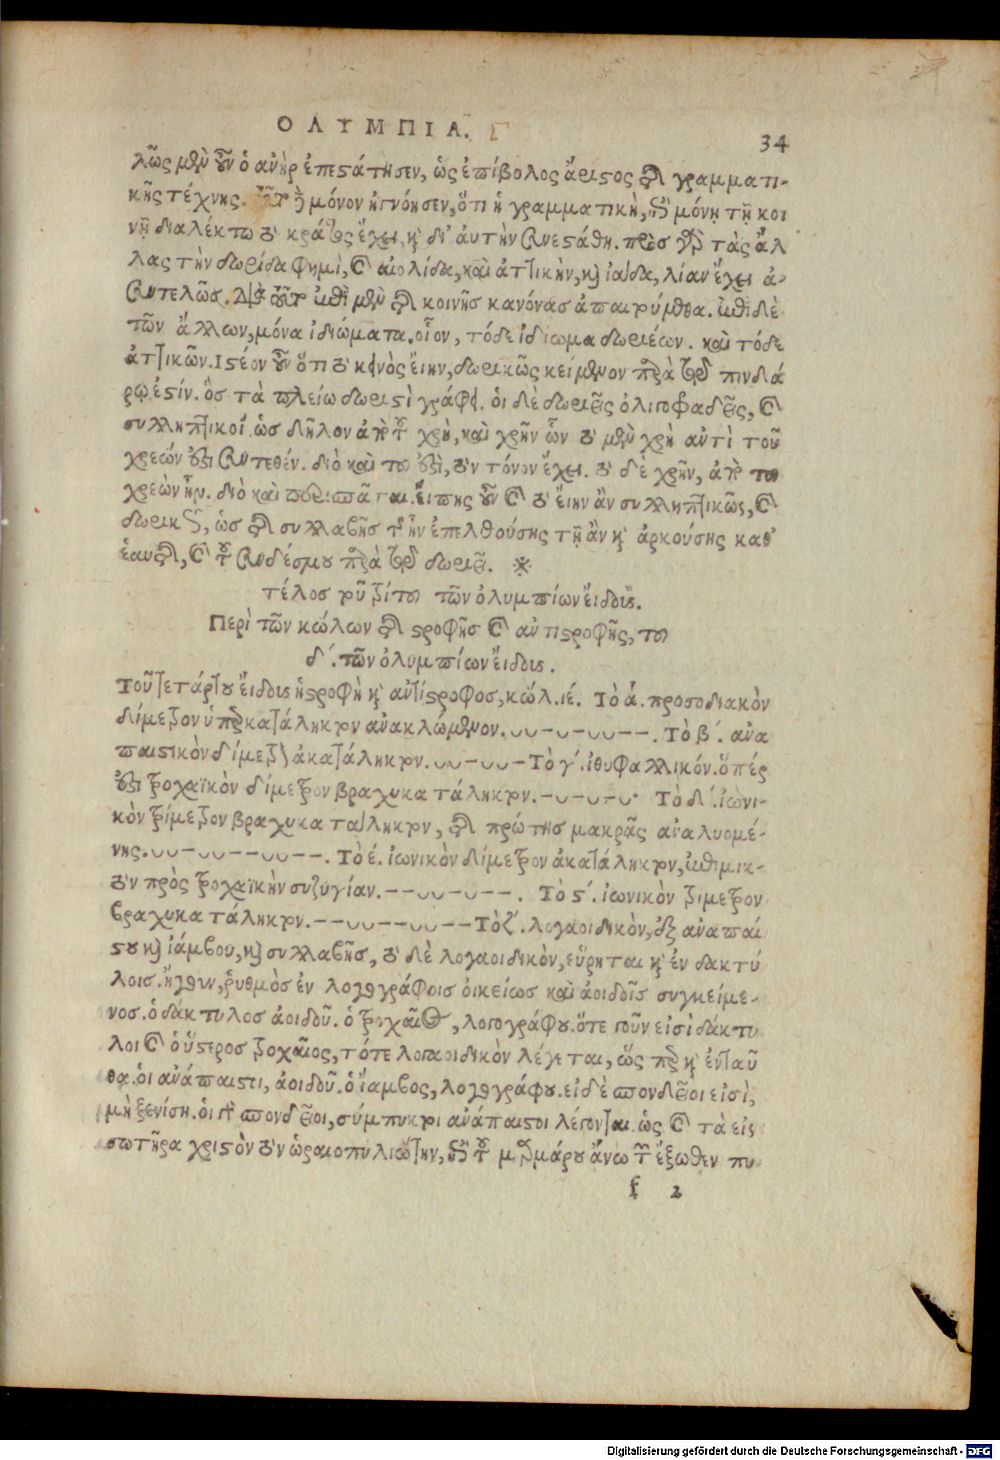 ΟΛΥΜΠΙΑ. Γ
34
λῶς μὲν οὖν ὁ ἀνὴρ ἐπεστάτησεν, ὡς ἐπίβολος ἄριστος τῆς γραμματι-
κῆς τέχνης. μόνον ἠγνόησεν, ὅτι ἡ γραμματικὴ, μόνῃ τῇ κοι
νῇ διαλέκτῳ τὸ κράτος ἔχει, καὶ δι' αὐτὴν συνεστάθη. πρὸς γὰρ τὰς ἄλ
λας τὴν δωρίδα φημὶ, καὶ αἰολίδα, καὶ ἀττικὴν, καὶ ἰάδα, λίαν ἔχει ἀ-
συντελῶς. ἐπὶ μὲν τῆς κοινῆς κανόνας ἀπαιρύμεθα. ἐπὶ δὲ
τῶν ἄλλων, μόνα ἰδιώματα. οἷον, τόδε ἰδίωμα δωριέων. καὶ τόδε
ἀττικῶν. Ιστέον οὖν ὅτι τὸ κεινὸς εἴην, δωρικῶς κείμενον παρὰ τῷ πινδά
ρῳ ἐστίν. ὃς τὰ πλείω δωριστὶ γράφει. οἱ δὲ δωριεῖς ὀλιγογράδεις, καὶ
συλληπτικοί. ὡς δῆλον ἀπὸ τοῦ χρὴ, καὶ χρῆν ὧν τὸ μὲν χρὴ ἀντὶ τοῦ
χρεών ἐστι συντεθέν. διὸ καὶ τοῦ ἐστὶ, τὸν τόνον ἔχει. τὸ δὲ χρῆν, ἀπὸ τοῦ
χρεὼν ἦν. διὸ καὶ περισπᾶται. εἴπῃς οὖν καὶ τὸ εἴην ἂν συλληπτικῶς, καὶ
δωρικῶς, ὡς τῆς συλλαβῆς τὴν ἐπελθούσης τῇ ἂν καὶ ἀρκούσης καθ'
ἑαυτῆς, καὶ τοῦ συνδέσμου παρὰ τοῖς δωριεῦσι. ※
τέλος τοῦ τρίτου τῶν ὀλυμπίων εἴδους.
Περὶ τῶν κώλων τῆς στροφῆς καὶ ἀντιστροφῆς, τοῦ
δ'. τῶν ὀλυμπίων εἴδους.
Τοῦ τετάρτου εἴδους ἡ στροφὴ καὶ ἀντίστροφος, κώλ. ιέ. Τὸ ά. προσοδιακὸν
δίμετρον ὑπερκατάληκτον ἀνακλώμενον. ᴗᴗ-ᴗ-ᴗᴗ--. Τὸ β'. ἀνα
παιστικὸν δίμετρον ἀκατάληκτον. ᴗᴗ-ᴗᴗ- Τὸ γ'. ἰθυφαλλικόν. ὅπερ
ἐστὶ τροχαϊκὸν δίμετρον βραχυκατάληκτον. -ᴗ-ᴗ-ᴗ· Τὸ δ'. ἰωνι-
κὸν τρίμετρον βραχυκατάληκτον, τῆς πρώτης μακρᾶς ἀναλυομέ-
νης. ᴗᴗ-ᴗᴗ--ᴗᴗ--. Τὸ έ. ἰωνικὸν δίμετρον ἀκατάληκτον, ἐπιμικ-
τὸν πρὸς τροχαϊκὴν συζυγίαν. --ᴗᴗ-ᴗ--. Τὸ ς'. ἰωνικὸν τρίμετρον
βραχυκατάληκτον. --ᴗᴗ--ᴗᴗ-- Τὸ ζ'. λογαοιδικὸν, ἐξ ἀναπαί
στου καὶ ἰάμβου, καὶ συλλαβῆς, τὸ δὲ λογαοιδικὸν, εὕρηται καὶ ἐν δακτύ
λοις. ἤγουν, ῥυθμὸς ἐν λογογράφοις οἰκείως καὶ ἀοιδοῖς συγκείμε-
νος. ὁ δάκτυλος ἀοιδοῦ. ὁ τροχαῖος, λογογράφου. ὅτε γοῦν εἰσὶ δάκτυ
λοι καὶ ὁ ὕστερος τροχαῖος, τότε λογαοιδικὸν λέγεται, ὥσπερ καὶ ἐνταῦ
θα. οἱ ἀνάπαιστι, ἀοιδοῦ. ὁ ἴαμβος, λογογράφου. εἰ δὲ σπονδεῖοι εἰσὶ,
μὴ ξενίσῃ. οἱ γὰρ σπονδεῖοι, σύμπυκροι ἀνάπαιστοι λέγονται. ὡς καὶ τὰ εἰς
σωτῆρα χριστὸν τὸν ὡραιοπυλιώτην, τοῦ μαρμάρου ἄνω τῆς ἔξωθεν πυ
f 2
Digitalisierung gefördert durch die Deutsche Forschungsgemeinschaft - DFG